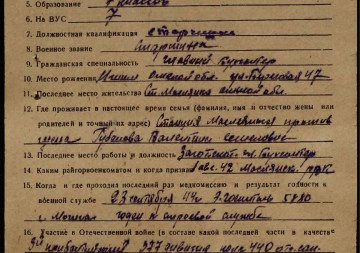 5. Образование 7 классов
6. На ВУС 7
7. Должностная квалификация старшина
8. Военное звание старшина
9. Гражданская специальность главный бухгалтер
10. Место рождения Ишим Омской обл. ул. 47
11. Последнее место жительства Ст. Маслянка Омской обл.
12. Где проживает в настоящее время семья (фамилия, имя и отчество жены или
родителей и точный их адрес) Станция Маслянская
жена Губанова Валентина Семеновна
13. Последнее место работы и должность Заготскот гл. бухгалтер
14. Каким райгорвоенкоматом и когда призван 1 авг. 42 Маслянск. РВК
15. Когда и где проходил последний раз медкомиссию и результат годности к
военной службе 23 сентября 44 г. Эвакогоспиталь 5820
г. Москва годен к строевой службе
16. Участие в Отечественной войне (в составе какой последней части в качестве
3й Прибалтийский 327 дивизия полк 440